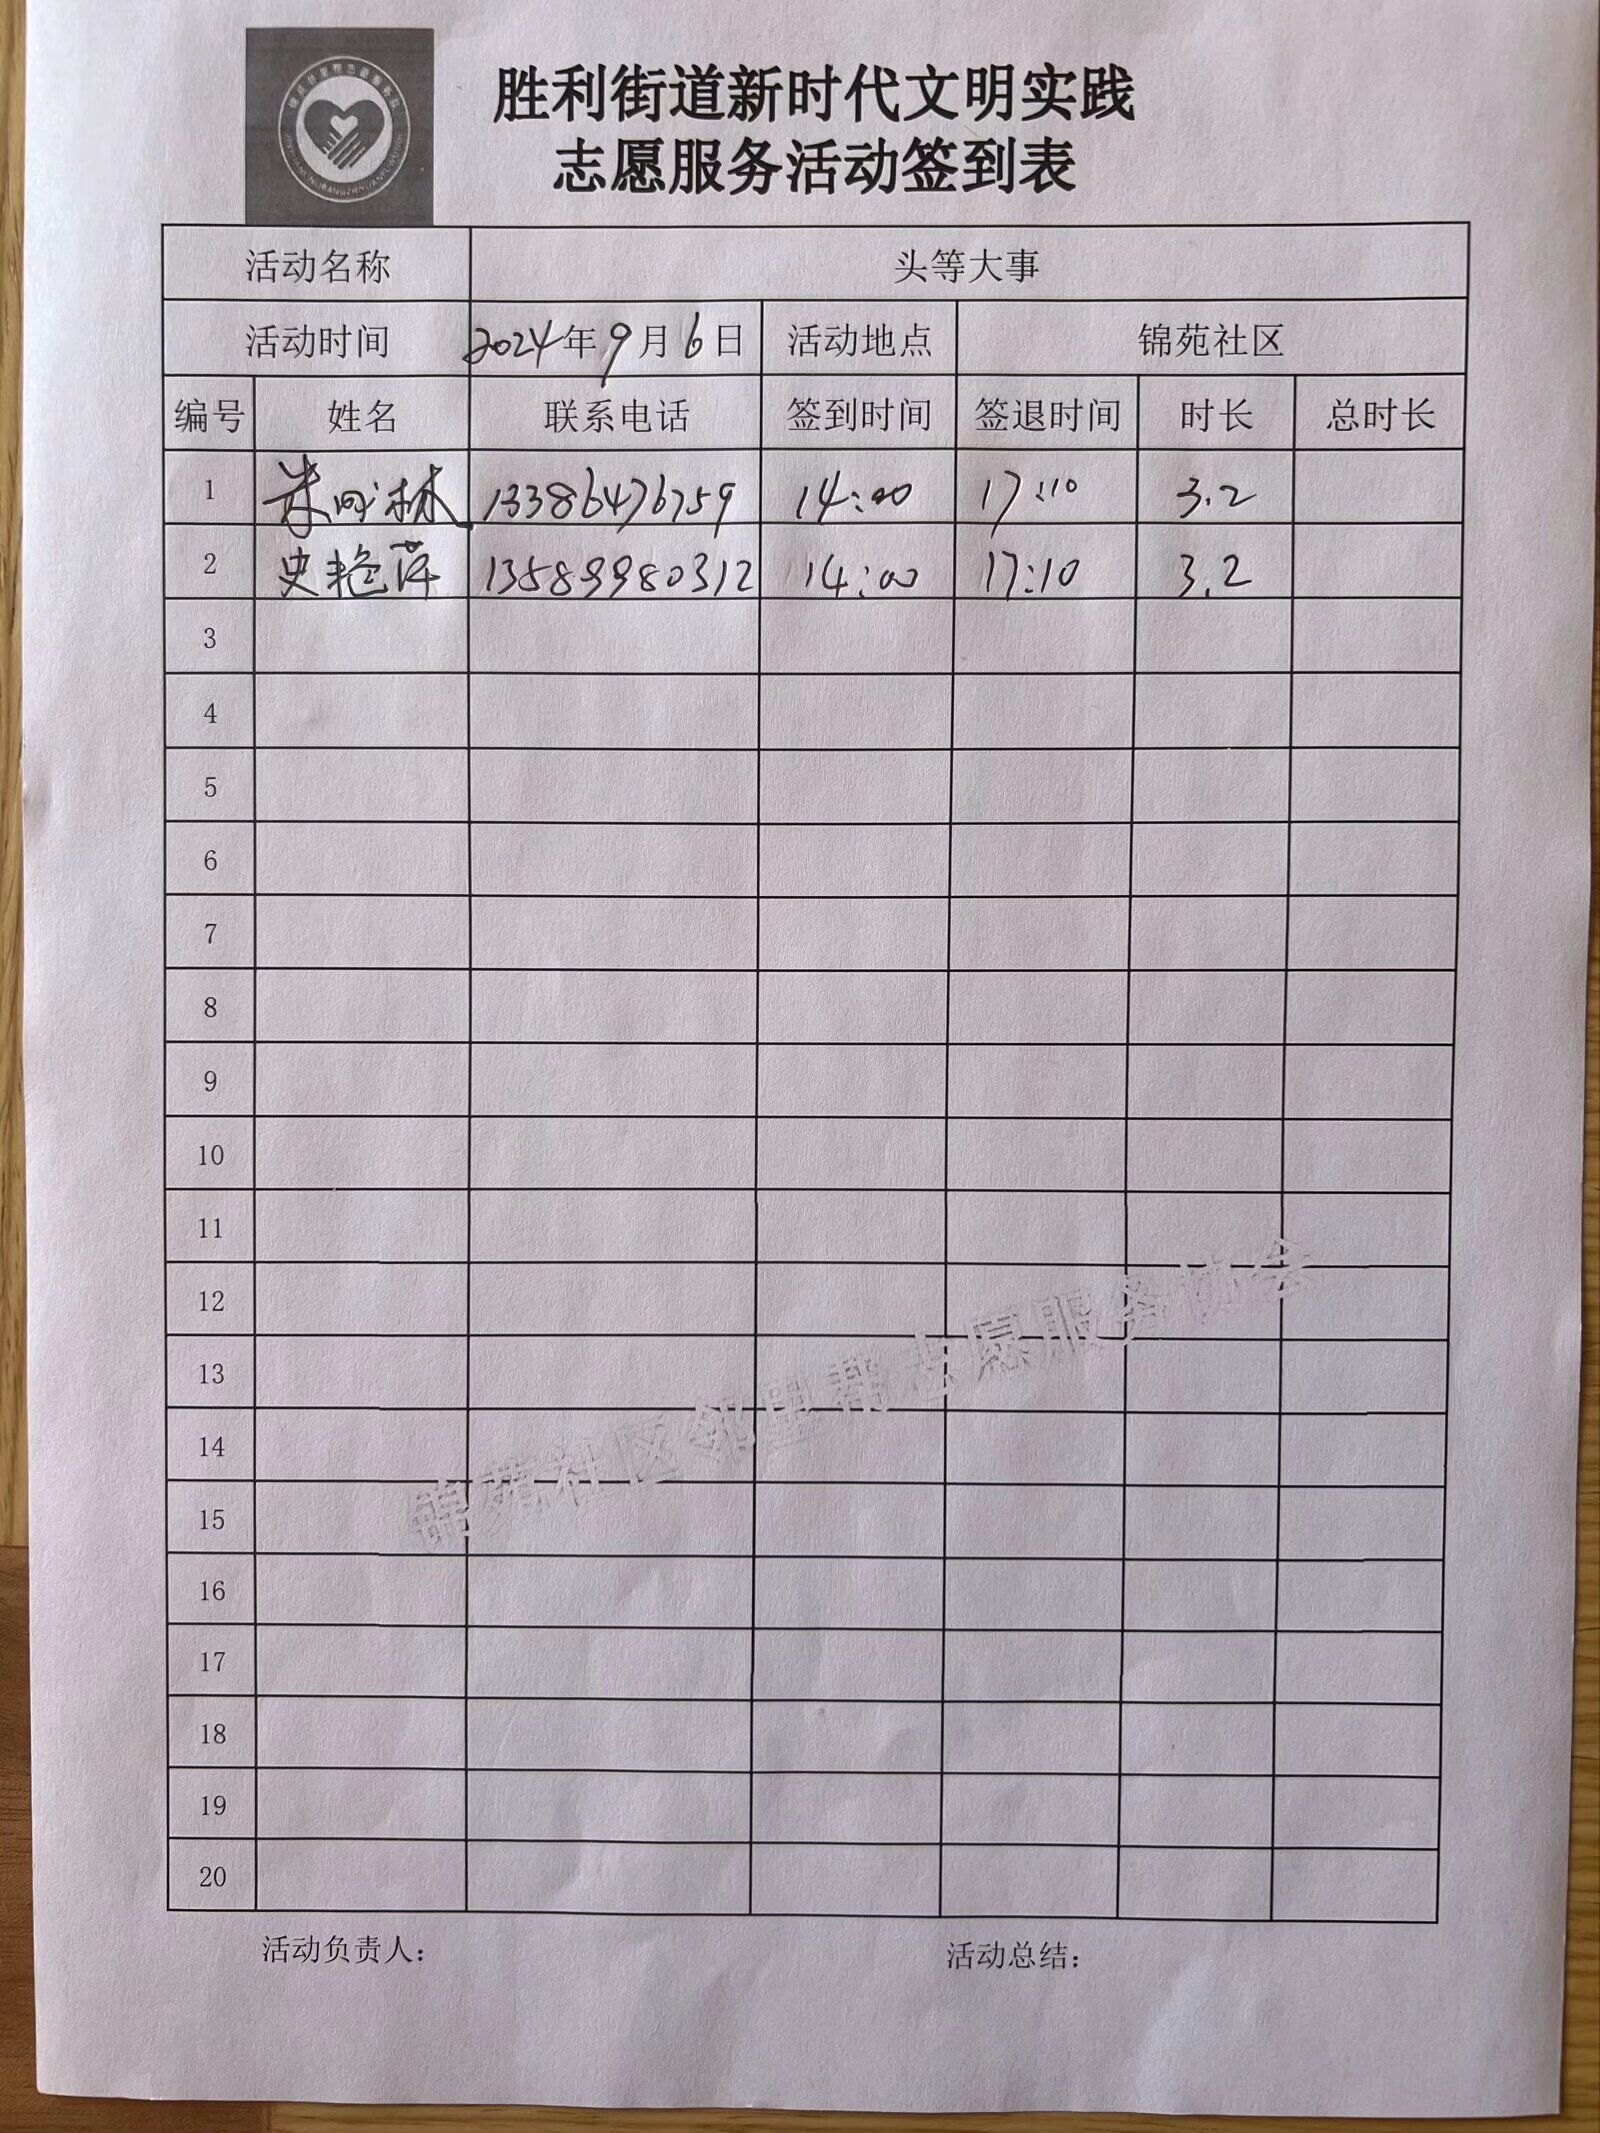 胜利街道新时代文明实践
志愿服务活动签到表
活动名称 头等大事
活动时间 2024年9月6日 活动地点 锦苑社区
编号 姓名 联系电话 签到时间 签退时间 时长 总时长
1 朱成林 13386476759 14:00 17:10 3.2
2 史艳萍 13589980312 14:00 17:10 3.2
3
4
5
6
7
8
9
10
11
12
13
14
15
16
17
18
19
20
锦苑社区邻里帮志愿服务协会
活动负责人： 活动总结：